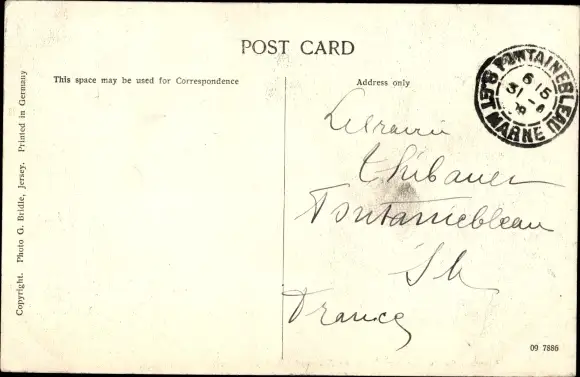 POST CARD
This space may be used for Correspondence
Address only
FONTAINEBLEAU
S. ET MARNE
6 15
31 - 8
09
Librairie
Thibauer
Fontainebleau
S M
France
Copyright. Photo G. Bridle, Jersey. Printed in Germany
09 7886